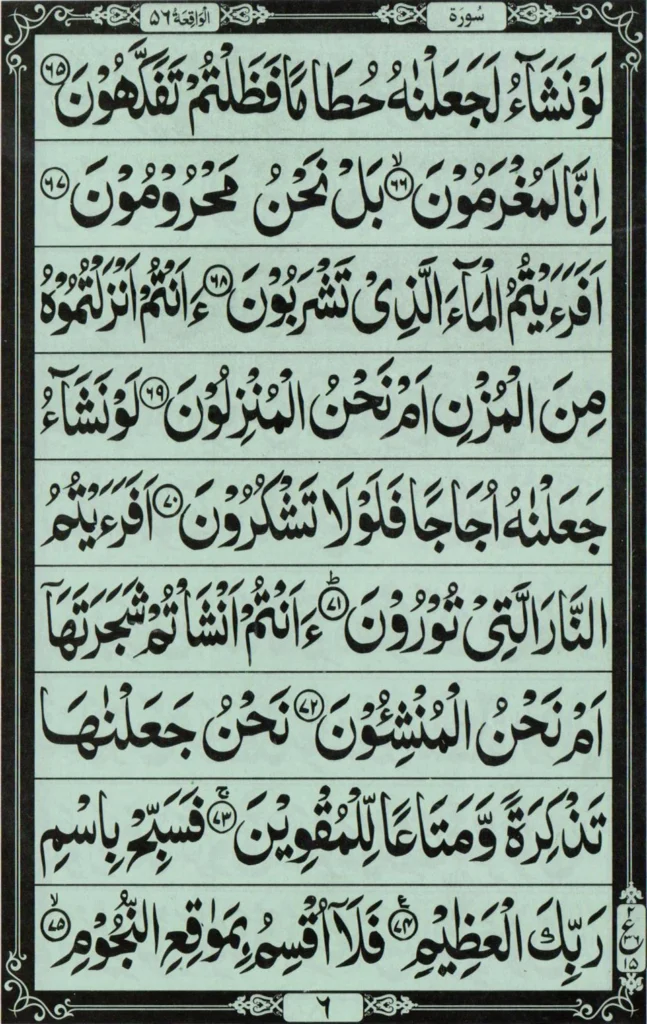 سُورَة
الْوَاقِعَة ٥٦
لَوْ نَشَآءُ لَجَعَلْنٰهُ حُطَامًا فَظَلْتُمْ تَفَكَّهُوْنَ ﴿۶۵﴾
اِنَّا لَمُغْرَمُوْنَ ﴿۶۶﴾ۙ بَلْ نَحْنُ مَحْرُوْمُوْنَ ﴿۶۷﴾
اَفَرَءَيْتُمُ الْمَآءَ الَّذِىْ تَشْرَبُوْنَ ﴿۶۸﴾ ءَاَنْتُمْ اَنْزَلْتُمُوْهُ
مِنَ الْمُزْنِ اَمْ نَحْنُ الْمُنْزِلُوْنَ ﴿۶۹﴾ لَوْ نَشَآءُ
جَعَلْنٰهُ اُجَاجًا فَلَوْلَا تَشْكُرُوْنَ ﴿۷۰﴾ اَفَرَءَيْتُمُ
النَّارَ الَّتِىْ تُوْرُوْنَ ﴿۷۱﴾ؕ ءَاَنْتُمْ اَنْشَاْتُمْ شَجَرَتَهَآ
اَمْ نَحْنُ الْمُنْشِئُوْنَ ﴿۷۲﴾ نَحْنُ جَعَلْنٰهَا
تَذْكِرَةً وَّمَتَاعًا لِّلْمُقْوِيْنَ ﴿۷۳﴾ۚ فَسَبِّحْ بِاسْمِ
رَبِّكَ الْعَظِيْمِ ﴿۷۴﴾ع فَلَآ اُقْسِمُ بِمَوٰقِعِ النُّجُوْمِ ﴿۷۵﴾ۙ
۲
ع
۳۶
۱۵
۶